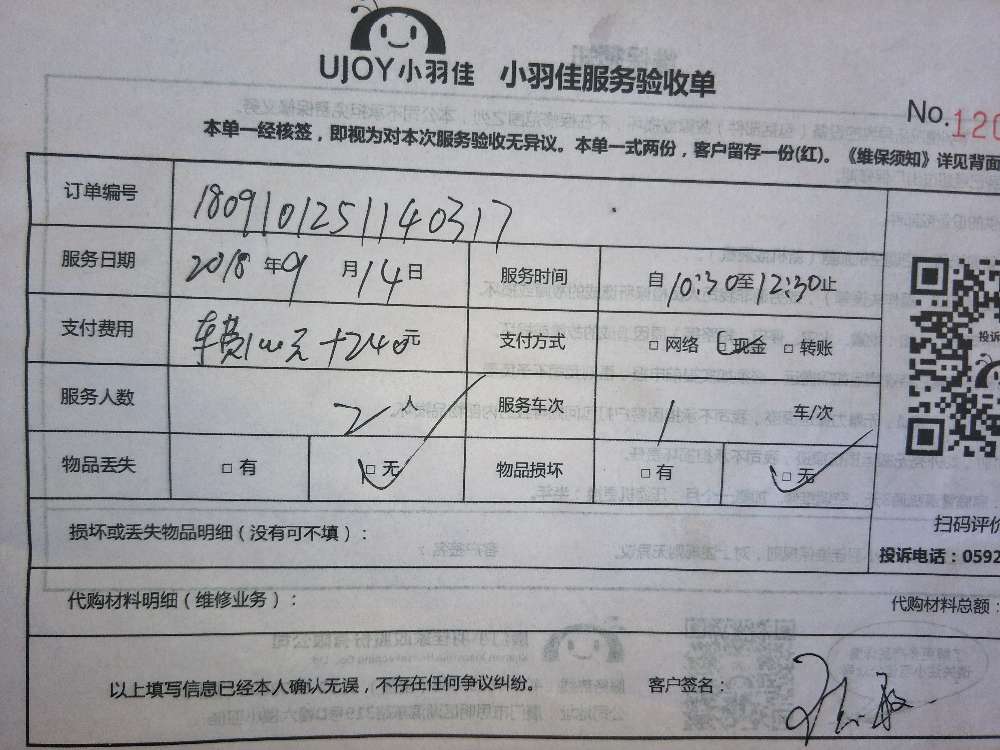 UJOY小羽佳 小羽佳服务验收单
No.126
本单一经核签，即视为对本次服务验收无异议。本单一式两份，客户留存一份(红)。《维保须知》详见背面
订单编号 1809101251140317
服务日期 2018年9月14日 服务时间 自10:30至12:30止
支付费用 车费100元+240元 支付方式 □网络 □现金 □转账
服务人数 2人 服务车次 1 车/次
物品丢失 □有 □无 物品损坏 □有 □无
投诉
扫码评价
损坏或丢失物品明细（没有可不填）：
投诉电话：0592
代购材料明细（维修业务）： 代购材料总额：
以上填写信息已经本人确认无误，不存在任何争议纠纷。 客户签名：